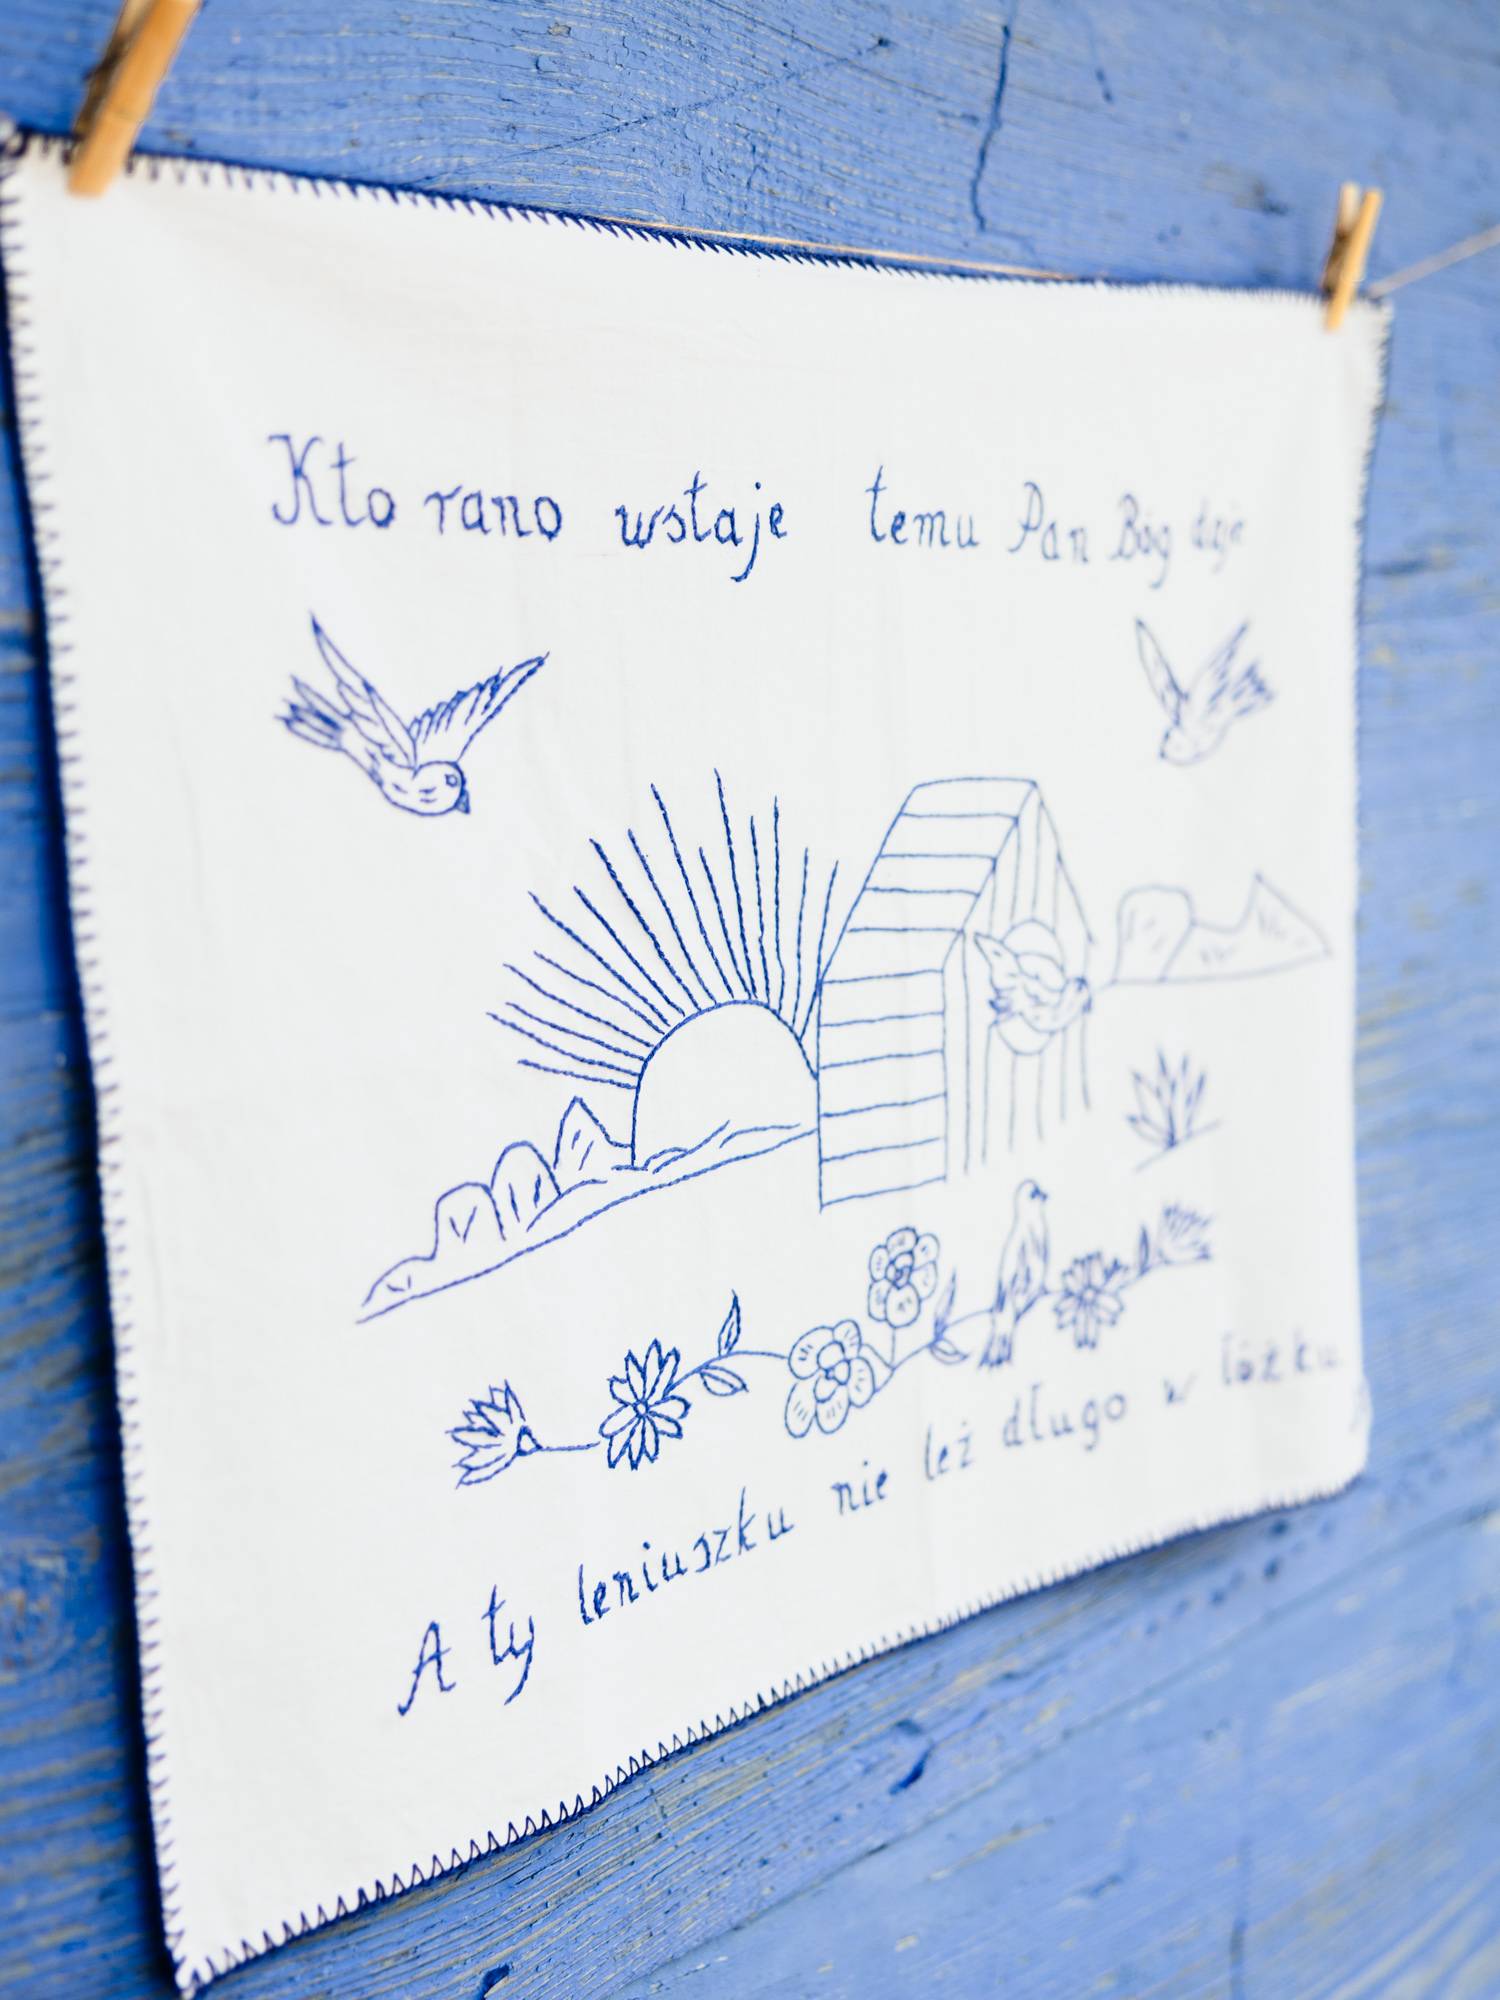 Kto rano wstaje temu Pan Bóg daje
A ty leniuszku nie leż długo w łóżku